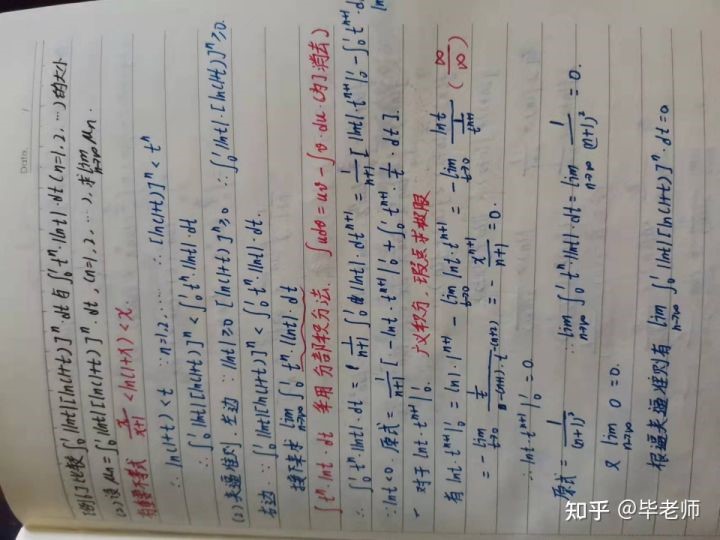 Date. /
[例6] 比较∫₀¹|lnt|[ln(1+t)]ⁿ·dt 与 ∫₀¹tⁿ·|lnt|·dt (n=1,2,…)的大小
(2) 设 μn=∫₀¹|lnt|[ln(1+t)]ⁿdt, (n=1,2,…), 求 lim n→∞ μn.
有重要不等式 x/(x+1)<ln(1+x)<x.
∴ ln(1+t)<t ∵n=1,2,… ∴[ln(1+t)]ⁿ<tⁿ
∴ ∫₀¹|lnt|[ln(1+t)]ⁿ<∫₀¹tⁿ·|lnt|·dt
(2) 夹逼准则. 左边 ∵|lnt|≥0 [ln(1+t)]ⁿ≥0 ∴∫₀¹|lnt|·[ln(1+t)]ⁿ≥0.
右边 ∵∫₀¹|lnt|[ln(1+t)]ⁿ<∫₀¹tⁿ·|lnt|·dt.
接下来求 lim n→∞ ∫₀¹tⁿ·|lnt|·dt
∫tⁿ·lnt·dt 采用分部积分法. ∫udv=uv-∫v·du.(为了消去)
∴ ∫₀¹tⁿ·|lnt|·dt = 1/(n+1) ∫₀¹|lnt|·dtⁿ⁺¹ = 1/(n+1)[|lnt|·tⁿ⁺¹|₀¹-∫₀¹tⁿ⁺¹·d
∵lnt<0. 原式=1/(n+1)[-lnt·tⁿ⁺¹|₀¹+∫₀¹tⁿ⁺¹·1/t·dt].
对于lnt·tⁿ⁺¹|₀¹. 广义积分 瑕点求极限
有lnt·tⁿ⁺¹|₀¹=ln1·1ⁿ⁺¹-lim t→0 lnt·tⁿ⁺¹=-lim t→0 lnt/(1/tⁿ⁺¹) (∞/∞)
=-lim t→0 (1/t)/(-(n+1)·t^-(n+2))=-xⁿ⁺¹/(n+1)=0.
∴lnt·tⁿ⁺¹|₀¹=0.
原式=1/(n+1)² ∴lim n→∞ ∫₀¹tⁿ·|lnt|·dt=lim n→∞ 1/(n+1)²=0.
又 lim n→∞ 0=0.
根据夹逼准则有 lim n→∞ ∫₀¹|lnt|[ln(1+t)]ⁿ·dt=0
知乎 @毕老师